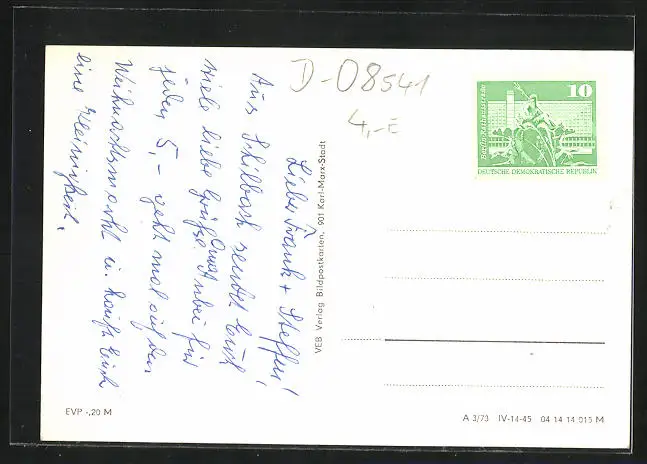 D-08541
4,-E
Liebe Frank + Steffen!
Aus Schilbach sendet Euch
viele liebe Grüße Oma. Anbei für
jeden 5,- geht mal auf den
Weihnachtsmarkt u. kauft Euch
eine Kleinigkeit.
VEB Verlag Bildpostkarten, 901 Karl-Marx-Stadt
10
Berlin, Rathausstraße
DEUTSCHE DEMOKRATISCHE REPUBLIK
EVP -,20 M
A 3/73 IV-14-45 04 14 14 015 M